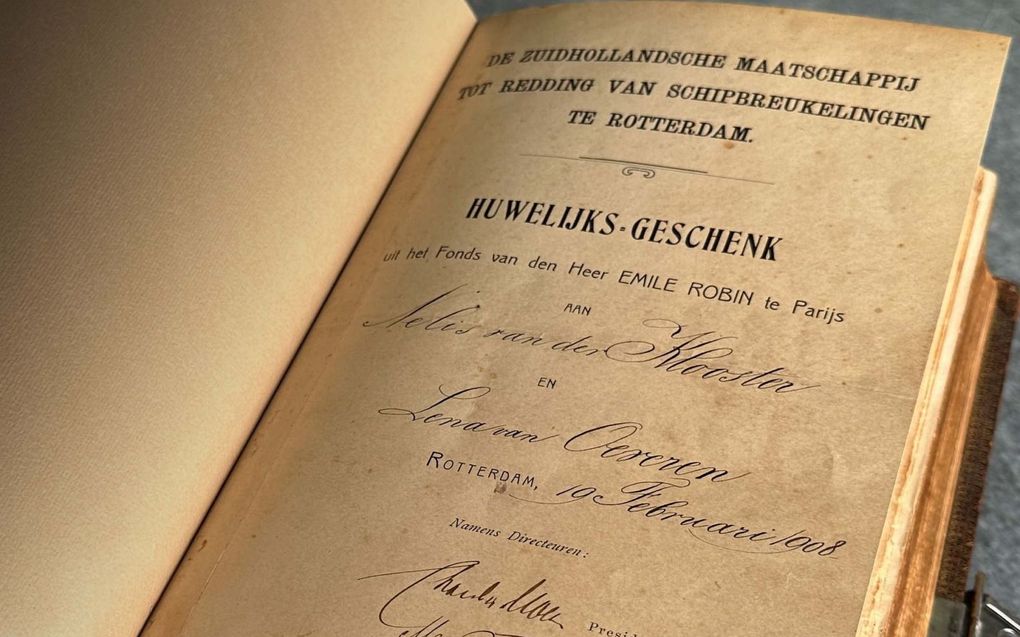 DE ZUIDHOLLANDSCHE MAATSCHAPPIJ
TOT REDDING VAN SCHIPBREUKELINGEN
TE ROTTERDAM.
HUWELIJKS-GESCHENK
uit het Fonds van den Heer EMILE ROBIN te Parijs
AAN
Nelis van der Klooster
EN
Lena van Oeveren
ROTTERDAM, 19 Februari 1908
Namens Directeuren: